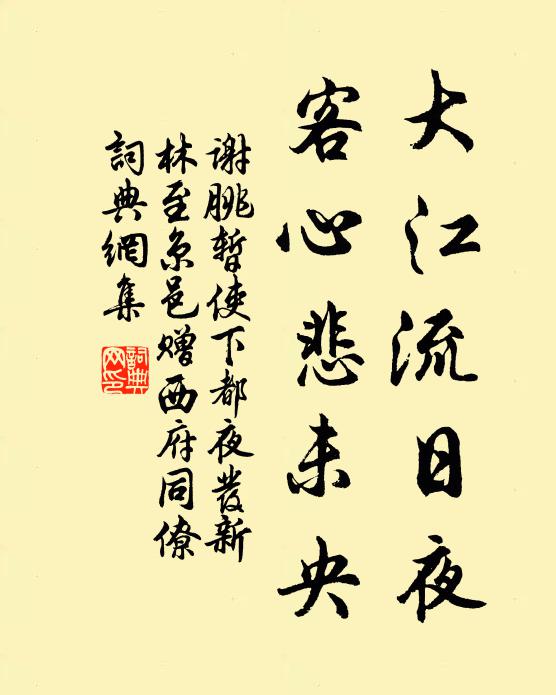 大江流日夜
客心悲未央
謝朓暫使下都夜發新
林至京邑贈西府同僚
詞典網集
詞典
网印